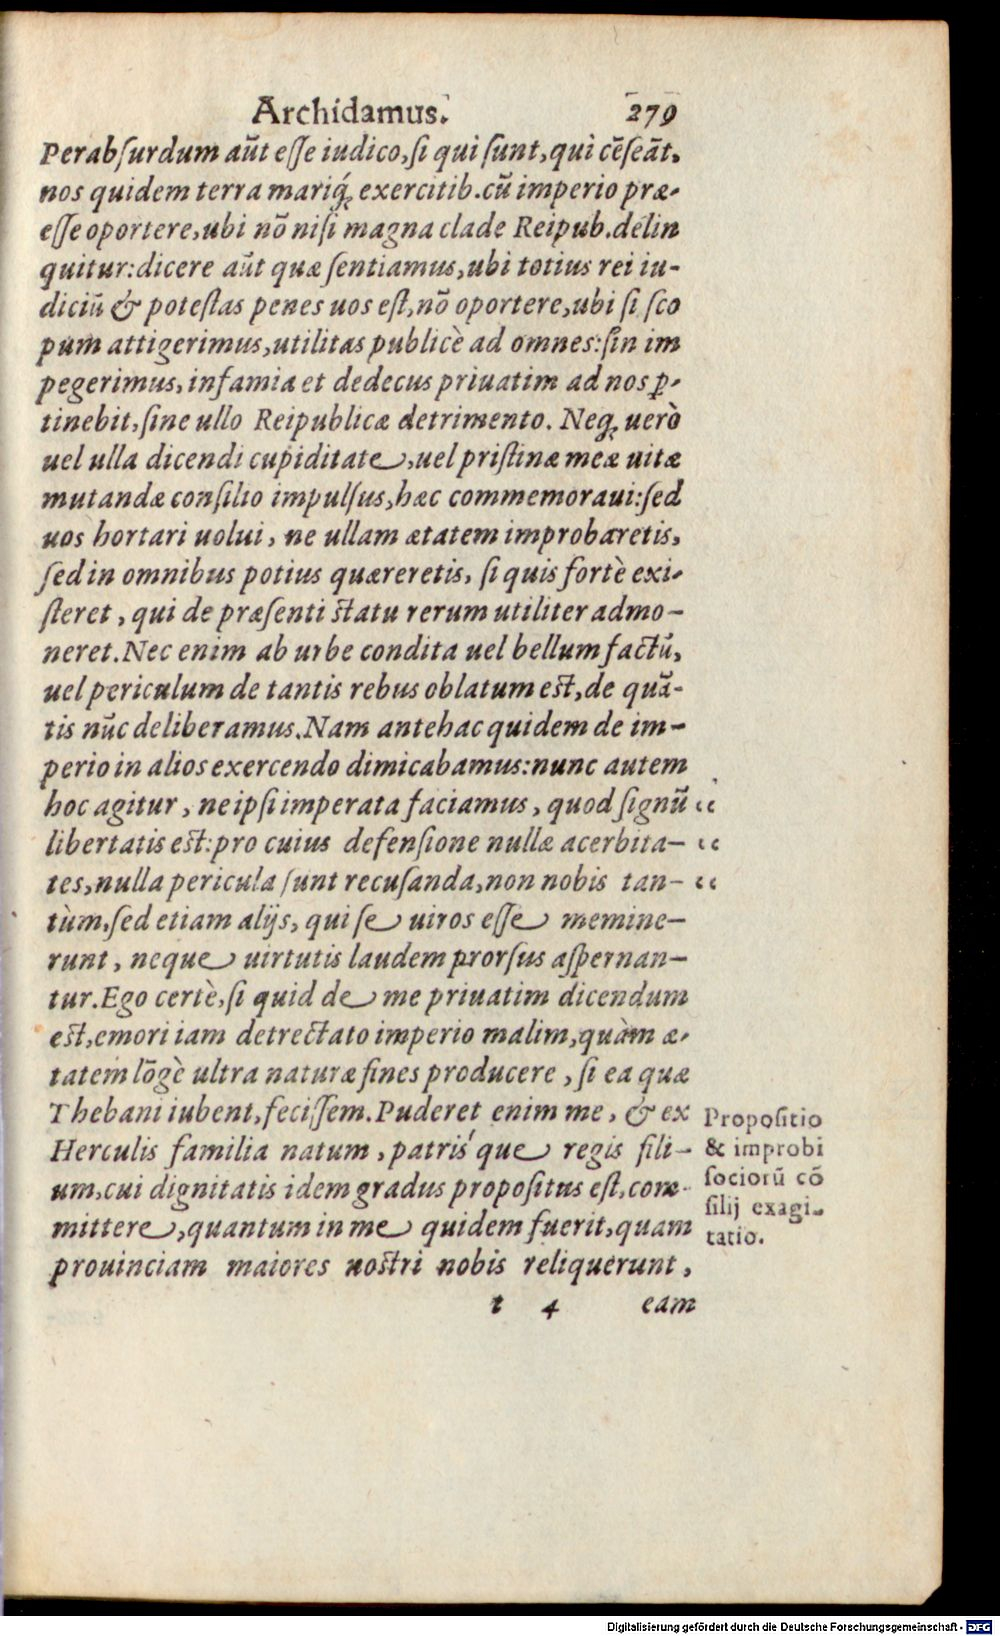 Archidamus. 279
Perabſurdum aūt eſſe iudico, ſi qui ſunt, qui cēſeāt,
nos quidem terra mariq́; exercitib. cū imperio præ-
eſſe oportere, ubi nō niſi magna clade Reipub. delin
quitur: dicere aūt quæ ſentiamus, ubi totius rei iu-
diciū & poteſtas penes uos eſt, nō oportere, ubi ſi ſco
pum attigerimus, utilitas publicè ad omnes: ſin im
pegerimus, infamia et dedecus priuatim ad nos ꝑ-
tinebit, ſine ullo Reipublicæ detrimento. Neq; uerò
uel ulla dicendi cupiditate, uel priſtinæ meæ uitæ
mutandæ conſilio impulſus, hæc commemoraui: ſed
uos hortari uolui, ne ullam ætatem improbaretis,
ſed in omnibus potius quæreretis, ſi quis fortè exi-
ſteret, qui de præſenti ſtatu rerum utiliter admo-
neret. Nec enim ab urbe condita uel bellum factū,
uel periculum de tantis rebus oblatum eſt, de quā-
tis nūc deliberamus. Nam antehac quidem de im-
perio in alios exercendo dimicabamus: nunc autem
hoc agitur, ne ipſi imperata faciamus, quod ſignū “
libertatis eſt: pro cuius defenſione nullæ acerbita- “
tes, nulla pericula ſunt recuſanda, non nobis tan- “
tùm, ſed etiam alijs, qui ſe uiros eſſe memine-
runt, neque uirtutis laudem prorſus aſpernan-
tur. Ego certè, ſi quid de me priuatim dicendum
eſt, emori iam detrectato imperio malim, quàm æ-
tatem lōgè ultra naturæ fines producere, ſi ea quæ
Thebani iubent, feciſſem. Puderet enim me, & ex
Herculis familia natum, patris'que regis fili-
um, cui dignitatis idem gradus propoſitus eſt, com-
mittere, quantum in me quidem fuerit, quam
prouinciam maiores noſtri nobis reliquerunt,
t 4 eam
Propoſitio
& improbi
ſociorū cō
ſilij exagi-
tatio.
Digitalisierung gefördert durch die Deutsche Forschungsgemeinschaft - DFG